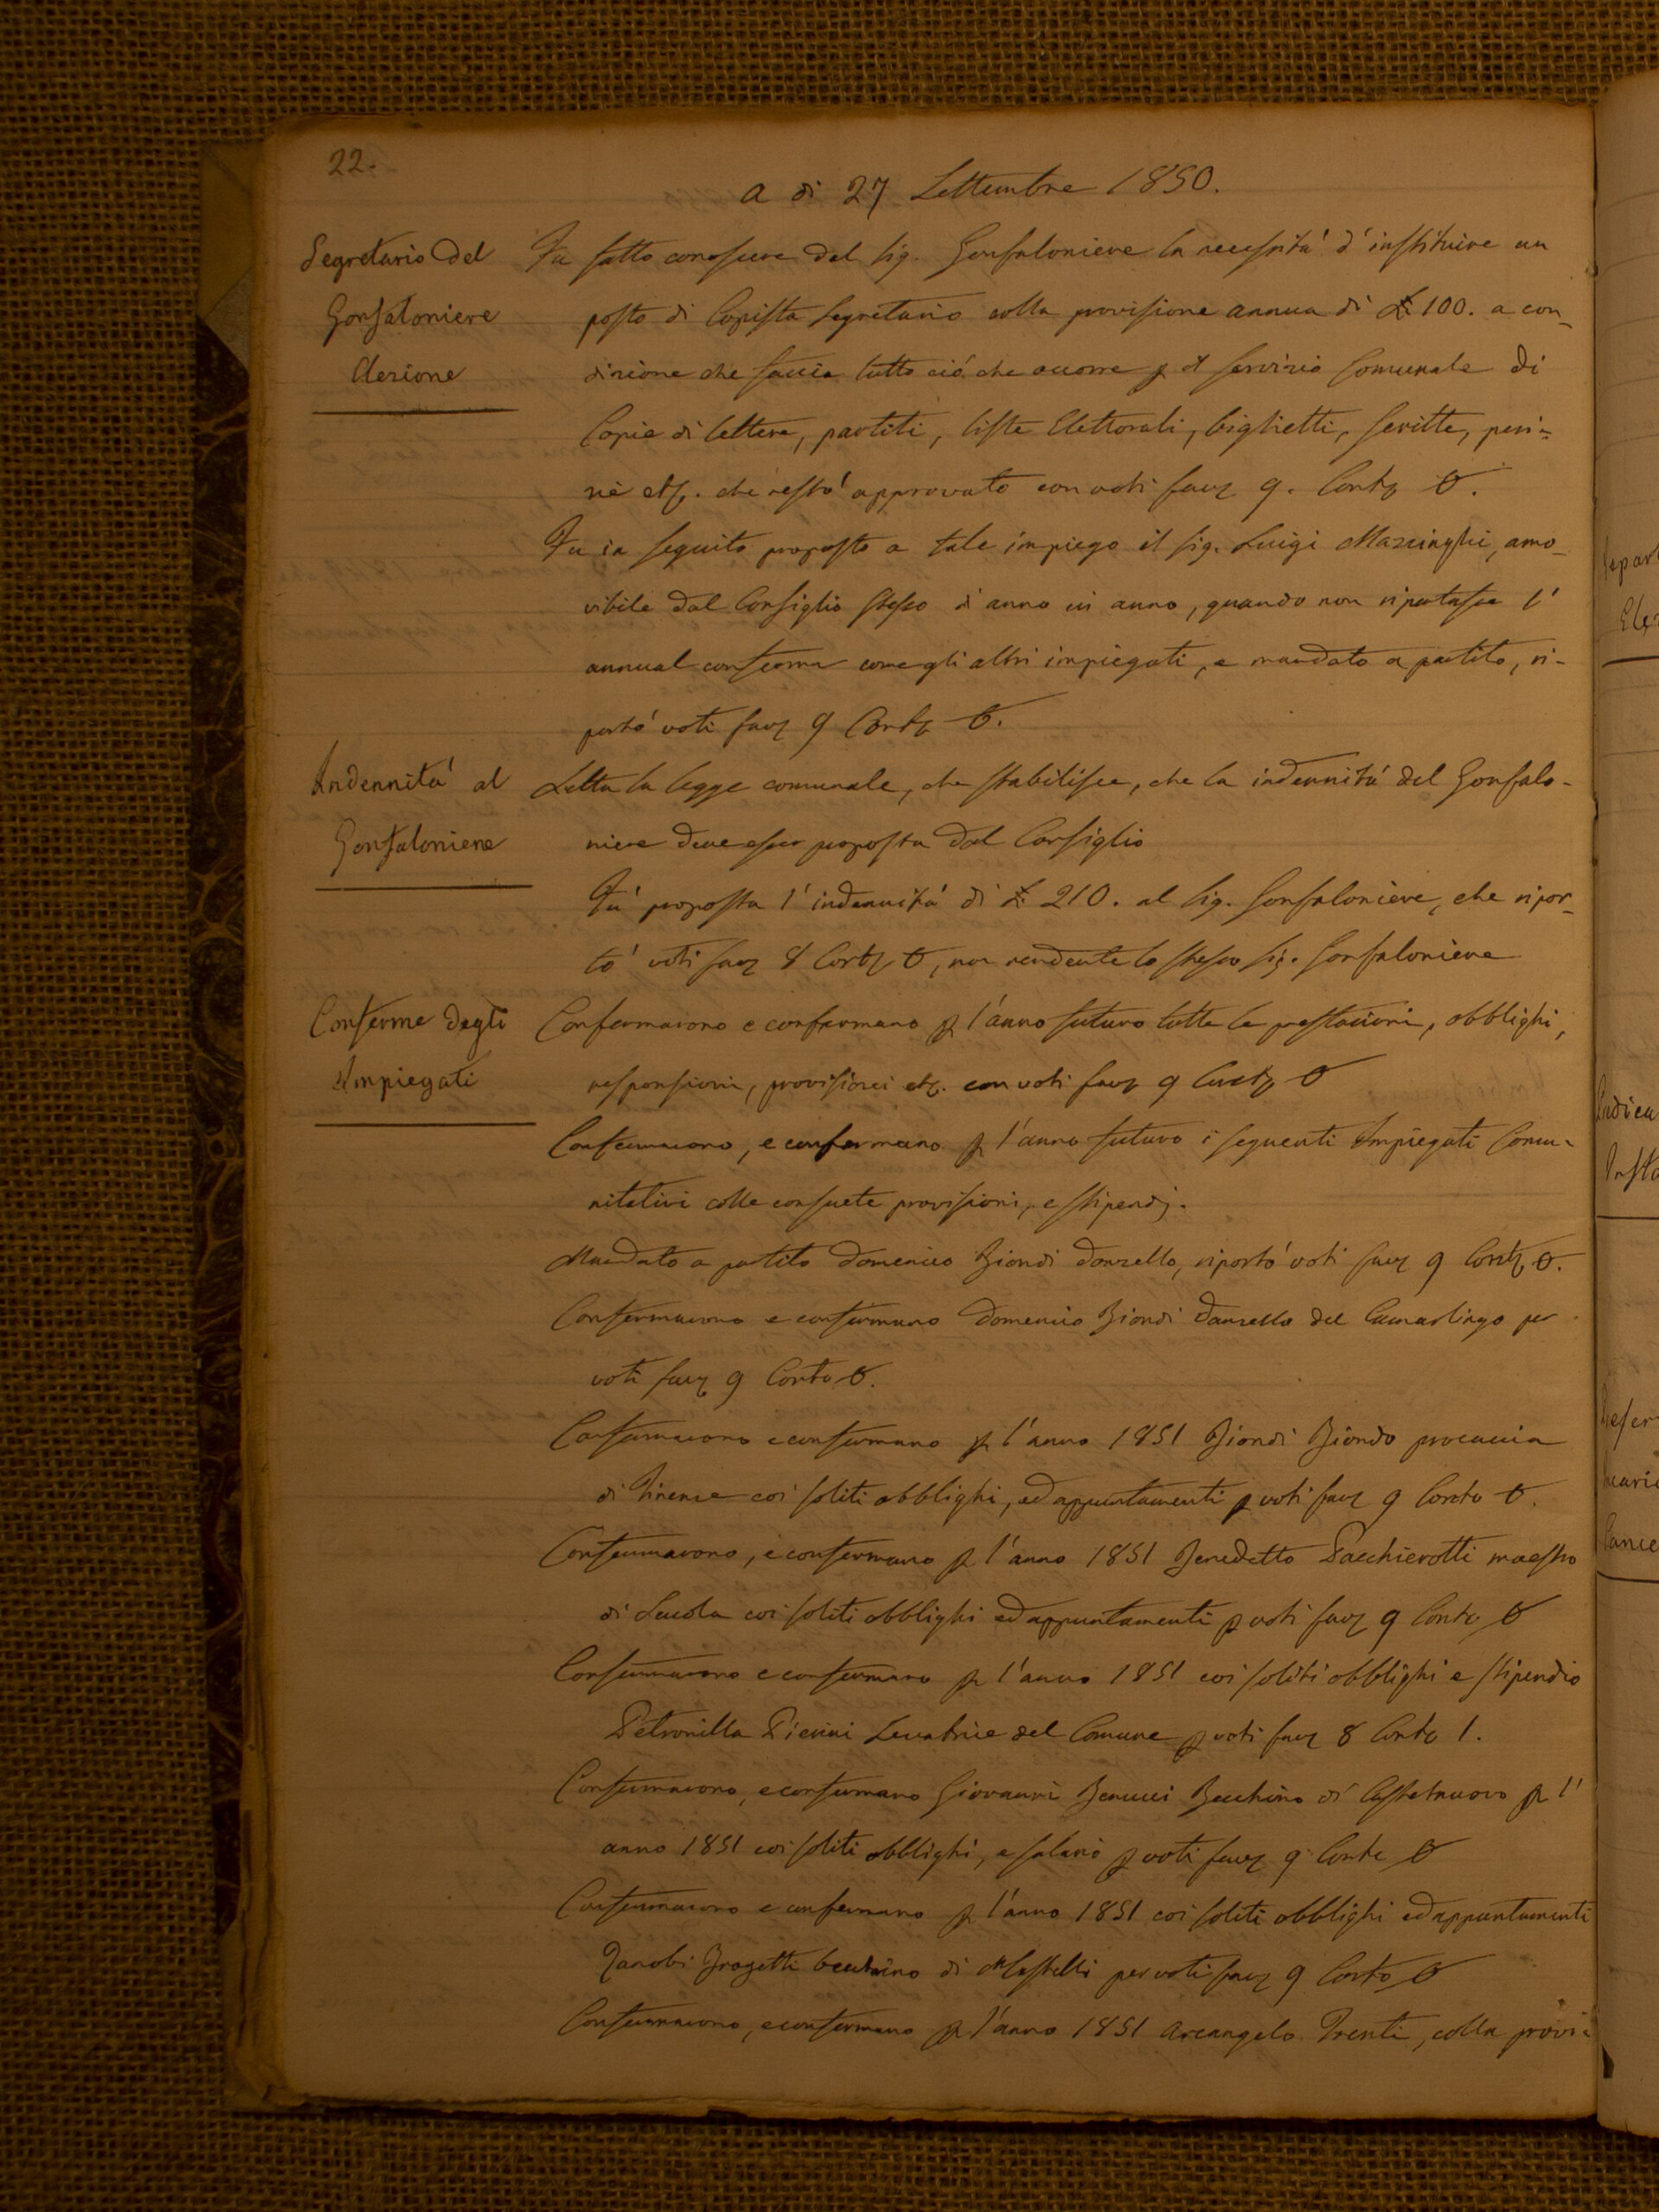 22.
a di 27 Settembre 1850.
Segretario del
Gonfaloniere
Elezione
Fu fatto conoscere dal Sig. Gonfaloniere la necessità d'instituire un
posto di Copista Segretario colla provisione annua di £ 100. a con-
dizione che faccia tutto ciò che occorre p il servizio Comunale di
Copie di lettere, partiti, liste Elettorali, biglietti, scritte, peri-
zie etc. che restò approvato con voti fav 9. Contr 0.
Fu in seguito proposto a tale impiego il Sig. Luigi Mazzinghi, amo-
vibile dal Consiglio stesso d'anno in anno, quando non riportasse l'
annual conferma come gli altri impiegati, e mandato a partito, ri-
portò voti fav 9 Contr 0.
Indennità al
Gonfaloniere
Letta la legge comunale, che stabilisce, che la indennità del Gonfalo-
niere deve esser proposta dal Consiglio
Fù proposta l'indennità di £ 210. al Sig. Gonfaloniere, che ripor-
tò voti fav 8 Contr 0, non rendente lo stesso Sig. Gonfaloniere
Conferme degli
Impiegati
Confermarono e confermano p l'anno futuro tutte le prestazioni, obblighi,
responsioni, provisioni etc. con voti fav 9 Contr 0
Confermarono, e confermano p l'anno futuro i seguenti Impiegati Comu-
nitativi colle consuete provisioni, e stipendj.
Mandato a partito Domenico Biondi Donzello, riportò voti fav 9 Contr 0.
Confermarono e confermano Domenico Biondi Donzello del Camarlingo per
voti fav 9 Contr 0.
Confermarono e confermano p l'anno 1851 Biondi Biondo procaccia
di Firenze coi soliti obblighi, ed appuntamenti p voti fav 9 Contr 0.
Confermarono, e confermano p l'anno 1851 Benedetto Pacchierotti maestro
di Scuola coi soliti obblighi ed appuntamenti p voti fav 9 Contr 0
Confermarono e confermano p l'anno 1851 coi soliti obblighi e stipendio
Petronilla Pierini Levatrice del Comune p voti fav 8 Contr 1.
Confermarono, e confermano Giovanni Benucci Becchino di Castelnuovo p l'
anno 1851 coi soliti obblighi, e salario p voti fav 9 Contr 0
Confermarono e confermano p l'anno 1851 coi soliti obblighi ed appuntamenti
Zanobi Brogetti becchino di per voti fav 9 Contr 0
Confermarono, e confermano p l'anno 1851 Arcangelo Trenti, colla provi-